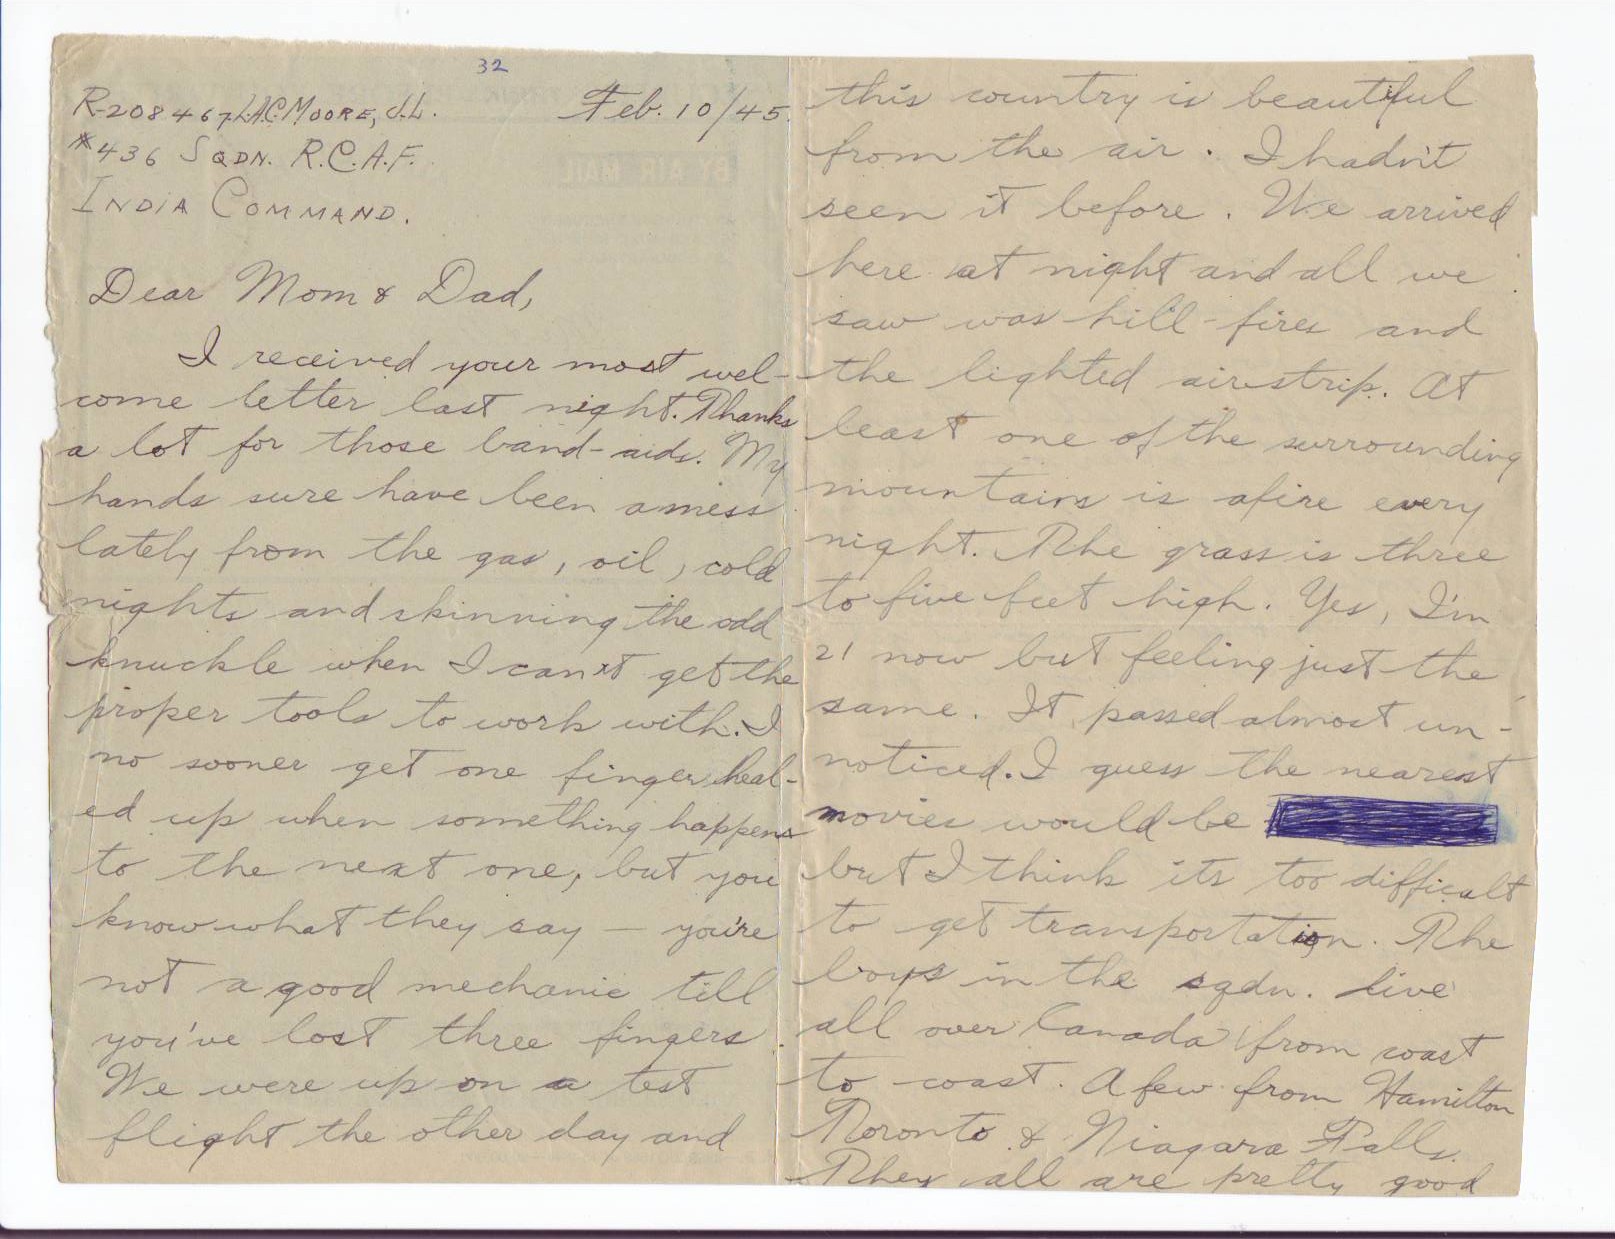 32
R-208467 LAC. MOORE, J.L. Feb. 10/45.
#436 SQDN. R.C.A.F.
INDIA COMMAND.
Dear Mom & Dad,
I received your most wel-
come letter last night. Thanks
a lot for those band-aids. My
hands sure have been a mess
lately from the gas, oil, cold
nights and skinning the odd
knuckle when I can't get the
proper tools to work with. I
no sooner get one finger heal-
ed up when something happens
to the next one, but you
know what they say — you're
not a good mechanic till
you've lost three fingers.
We were up on a test
flight the other day and
this country is beautiful
from the air. I hadn't
seen it before. We arrived
here at night and all we
saw was hill-fires and
the lighted airstrip. At
least one of the surrounding
mountains is afire every
night. The grass is three
to five feet high. Yes, I'm
21 now but feeling just the
same. It passed almost un-
noticed. I guess the nearest
movies would be
but I think its too difficult
to get transportation. The
boys in the sqdn. live
all over Canada from coast
to coast. A few from Hamilton
Toronto & Niagara Falls.
They all are pretty good
BY AIR MAIL